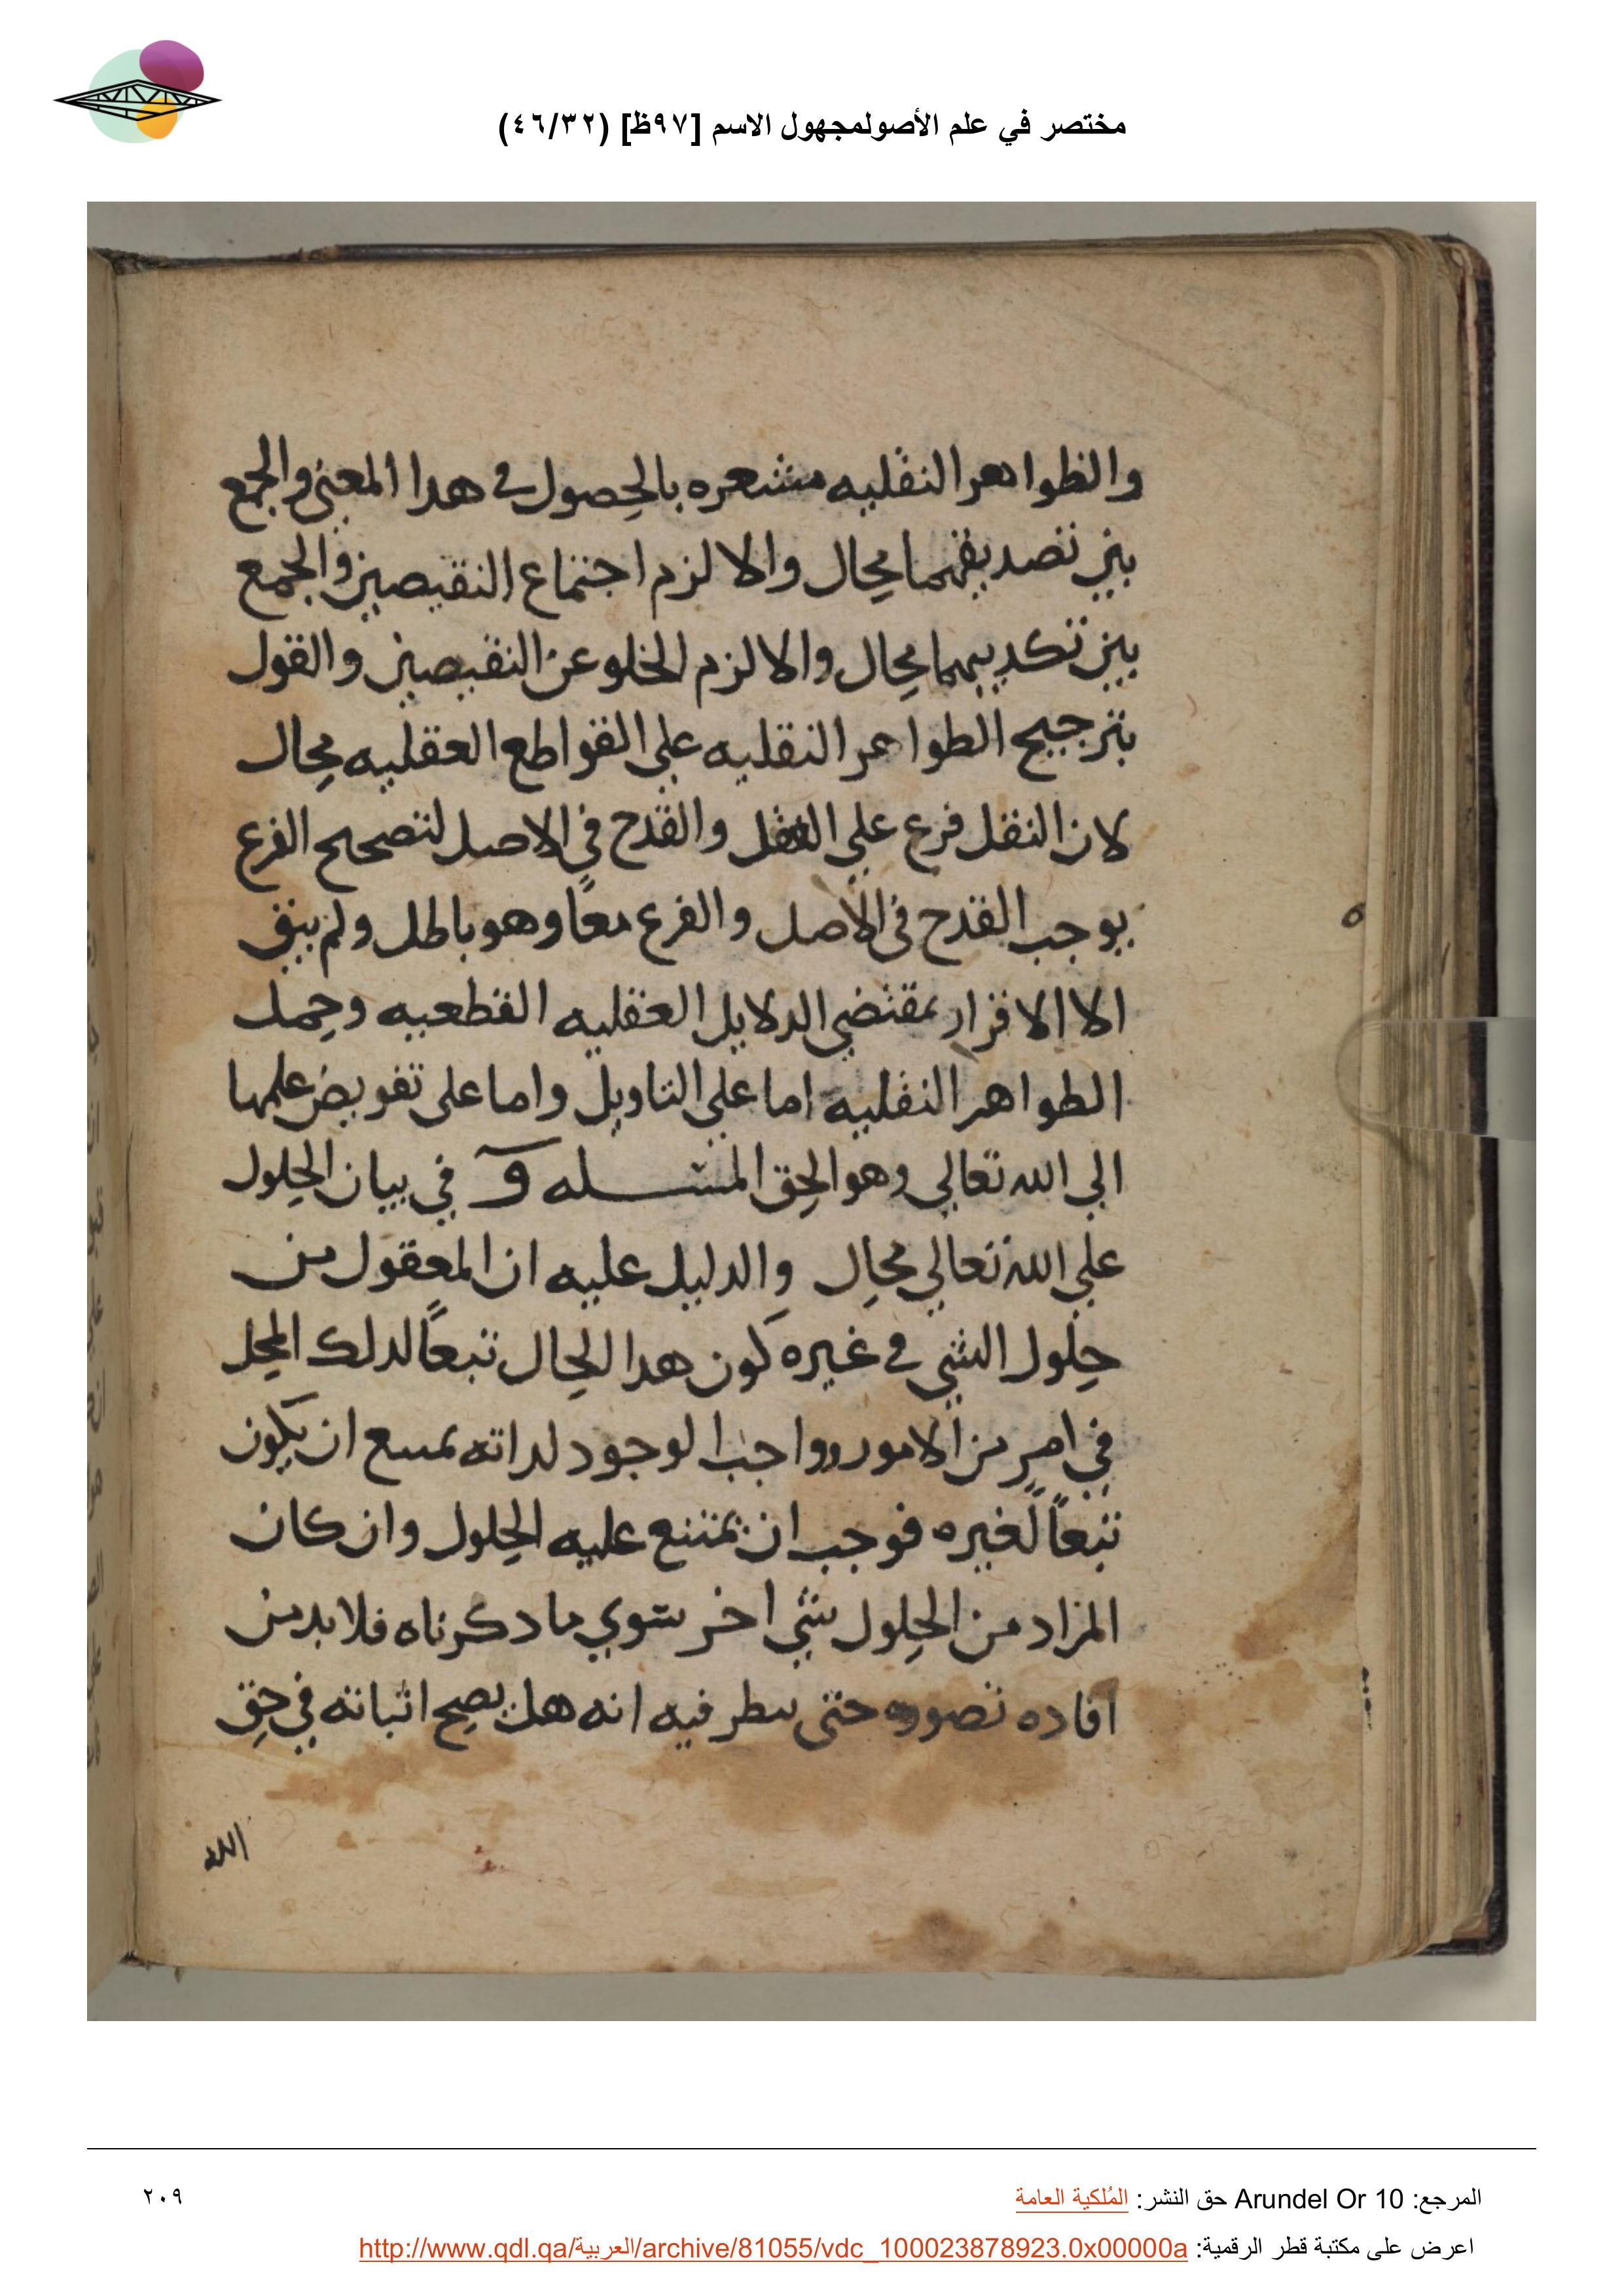 مختصر في علم الأصولمجهول الاسم [٩٧ظ] (٤٦/٣٢)
والظواهر النقليه مشعره بالحصول في هدا المعنى والجمع
بين تصديقهما محال والا لزم اجتماع النقيصين والجمع
بين تكديبهما محال والا لزم الخلو عن النقيصين والقول
بترجيح الطواهر النقليه على القواطع العقليه محال
لان النقل فرع على العقل والقدح في الاصل لتصحيح الفرع
يوجب القدح في الاصل والفرع معًا وهو باطل ولم يبق
الا الاقرار بمقتضى الدلايل العقليه القطعيه وحمل
الطواهر النقليه اما على التاويل واما على تفويض علمها
الى الله تعالى وهو الحق المسله و في بيان الحلول
على الله تعالى محال والدليل عليه ان المعقول من
حلول الشي في غيره كون هدا الحال تبعًا لدلك المحل
في امرٍ من الامور وواجب الوجود لداته يمتنع ان يكون
تبعًا لغيره فوجب ان يمتنع عليه الحلول وان كان
المراد من الحلول شي اخر سوي ما دكرناه فلا بد من
افاده تصوره حتى ينطر فيه انه هل يصح اثباته في حق
الله
المرجع: Arundel Or 10 حق النشر: المُلكية العامة
٢٠٩
اعرض على مكتبة قطر الرقمية: http://www.qdl.qa/العربية/archive/81055/vdc_100023878923.0x00000a